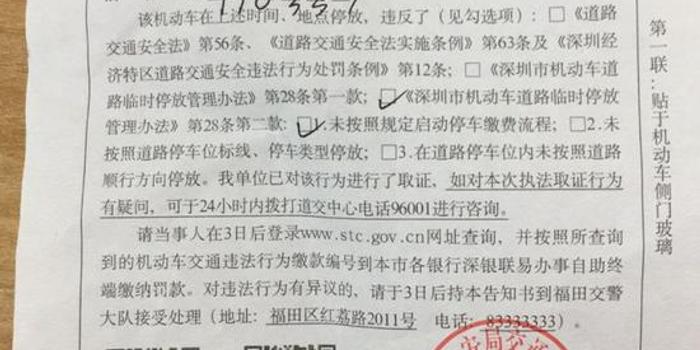 该机动车在上述时间、地点停放，违反了（见勾选项）：□《道路
交通安全法》第56条、《道路交通安全法实施条例》第63条及《深圳经
济特区道路交通安全违法行为处罚条例》第12条；□《深圳市机动车道
路临时停放管理办法》第28条第一款；☑《深圳市机动车道路临时停放
管理办法》第28条第二款：☑1.未按照规定启动停车缴费流程；□2.未
按照道路停车位标线、停车类型停放；□3.在道路停车位内未按照道路
顺行方向停放。我单位已对该行为进行了取证，如对本次执法取证行为
有疑问，可于24小时内拨打道交中心电话96001进行咨询。
请当事人在3日后登录www.stc.gov.cn网址查询，并按照所查询
到的机动车交通违法行为缴款编号到本市各银行深银联易办事自助终
端缴纳罚款。对违法行为有异议的，请于3日后持本告知书到福田交警
大队接受处理（地址：福田区红荔路2011号 电话：83333333）。
第一联：贴于机动车侧门玻璃